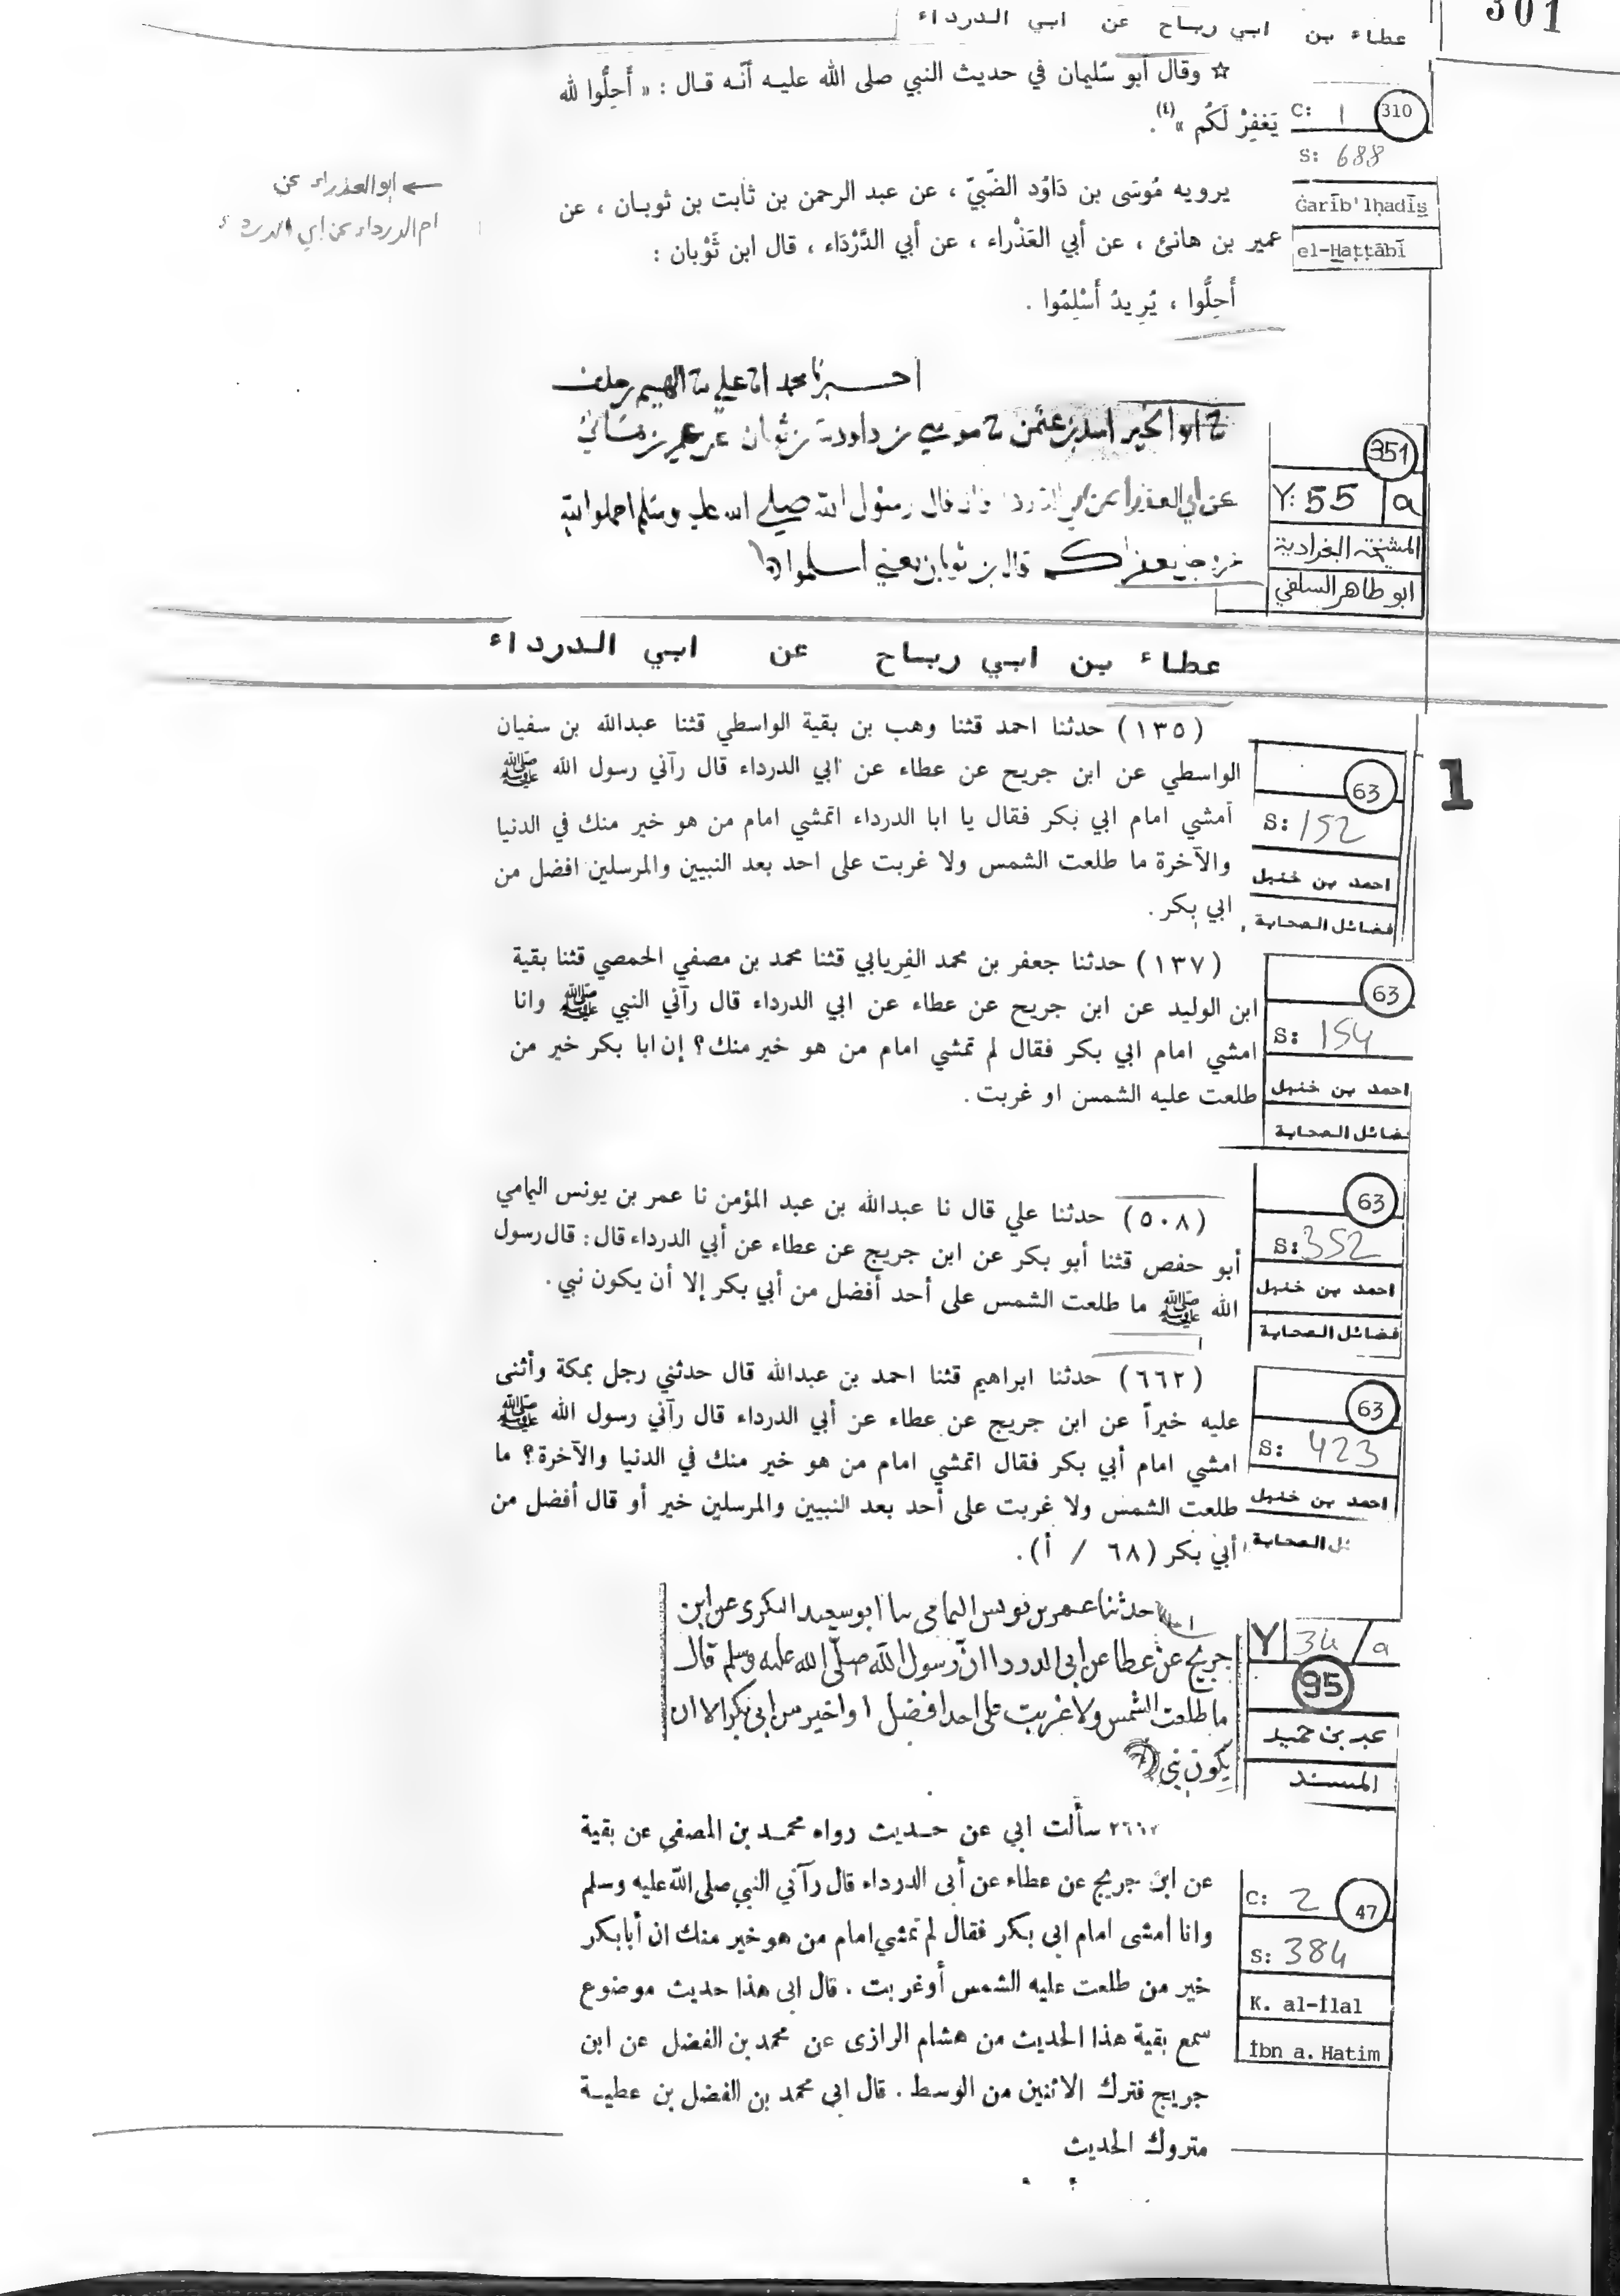 301
عطاء بن ابي رباح عن ابي الدرداء
☆ وقال أبو سُليمان في حديث النبي صلى الله عليه أنّه قال : « أَحِلُّوا لله
يَغفِرْ لَكُم »(٤).
C: 1 310
S: 688
Ġarīb'lḥadīs̱
el-Ḫaṭṭābī
← ابو العذراء عن
ام الدرداء عن ابي الدرداء
يرويه مُوسَى بن دَاوُد الضّبيّ ، عن عبد الرحمن بن ثابت بن ثوبان ، عن
عمير بن هانئ ، عن أبي العَذْراء ، عن أبي الدَّرْدَاء ، قال ابن ثَوْبان :
أَحِلُّوا ، يُرِيدُ أَسْلِمُوا .
اخبرنا محمد علي الهيثم بن خلف
ابو الخير اسد بن عثمن موسي بن داود بن ثوبان عن عمير بن هانئ
عن ابي العذرا عن ابي الدردا قال قال رسول الله صلي الله عليه وسلم احلوا الله
يغفر لكم قال بن ثوبان يعني اسلموا
351
Y: 55 / a
المشيخة البغدادية
ابو طاهر السلفي
عطاء بن ابي رباح عن ابي الدرداء
(١٣٥) حدثنا احمد قثنا وهب بن بقية الواسطي قثنا عبدالله بن سفيان
الواسطي عن ابن جريح عن عطاء عن ابي الدرداء قال رآني رسول الله ﷺ
أمشي امام ابي بكر فقال يا ابا الدرداء اتمشي امام من هو خير منك في الدنيا
والآخرة ما طلعت الشمس ولا غربت على احد بعد النبيين والمرسلين افضل من
ابي بكر .
63
1
S: 152
احمد بن حنبل
فضائل الصحابة
(١٣٧) حدثنا جعفر بن محمد الفِريابي قثنا محمد بن مصفي الحمصي قثنا بقية
ابن الوليد عن ابن جريح عن عطاء عن ابي الدرداء قال رآني النبي ﷺ وانا
امشي امام ابي بكر فقال لم تمشي امام من هو خير منك؟ إن ابا بكر خير من
طلعت عليه الشمس او غربت .
63
S: 154
احمد بن حنبل
فضائل الصحابة
(٥٠٨) حدثنا علي قال نا عبدالله بن عبد المؤمن نا عمر بن يونس اليمامي
أبو حفص قثنا أبو بكر عن ابن جريج عن عطاء عن أبي الدرداء قال : قال رسول
الله ﷺ ما طلعت الشمس على أحد أفضل من أبي بكر إلا أن يكون نبي .
63
S: 352
احمد بن حنبل
فضائل الصحابة
(٦٦٢) حدثنا ابراهيم قثنا احمد بن عبدالله قال حدثني رجل بمكة وأثنى
عليه خيراً عن ابن جريج عن عطاء عن أبي الدرداء قال رآني رسول الله ﷺ
امشي امام أبي بكر فقال اتمشي امام من هو خير منك في الدنيا والآخرة؟ ما
طلعت الشمس ولا غربت على أحد بعد النبيين والمرسلين خير أو قال أفضل من
أبي بكر (٦٨ / أ) .
63
S: 423
احمد بن حنبل
ئل الصحابة
حدثنا عمر بن يونس اليمامي نا ابو سعيد البكري عن ابن
جريج عن عطا عن ابي الدردا ان رسول الله صلى الله عليه وسلم قال
ما طلعت الشمس ولا غربت على احد افضل او اخير من ابي بكر الا ان
يكون نبي
Y 34 / a
95
عبد بن حميد
المسند
سألت ابي عن حديث رواه محمد بن المصفى عن بقية
عن ابن جريج عن عطاء عن أبى الدرداء قال رآني النبي صلى الله عليه وسلم
وانا أمشى امام ابى بكر فقال لم تمشي امام من هو خير منك ان أبا بكر
خير من طلعت عليه الشمس أو غربت . قال ابى هذا حديث موضوع
سمع بقية هذا الحديث من هشام الرازى عن محمد بن الفضل عن ابن
جريج فترك الاثنين من الوسط . قال ابى محمد بن الفضل بن عطية
متروك الحديث
C: 2 47
S: 384
K. al-İlal
İbn a. Hatim